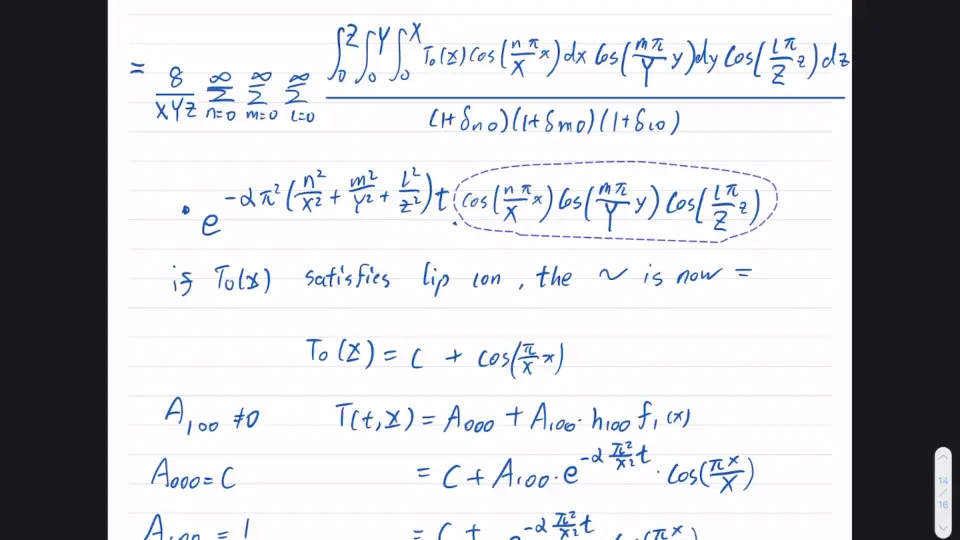 = 8/XYZ ∑_{n=0}^{∞} ∑_{m=0}^{∞} ∑_{l=0}^{∞} ∫_0^Z ∫_0^Y ∫_0^X T₀(x) cos(nπ/X x) dx cos(mπ/Y y) dy cos(lπ/Z z) dz / (1+δ_{n0})(1+δ_{m0})(1+δ_{l0})
· e^{-απ²(n²/X² + m²/Y² + l²/Z²)t} · cos(nπ/X x) cos(mπ/Y y) cos(lπ/Z z)
if T₀(x) satisfies lip con, the ~ is now =
T₀(x) = C + cos(π/X x)
A₁₀₀ ≠ 0 T(t,x) = A₀₀₀ + A₁₀₀ · h₁₀₀ f₁(x)
A₀₀₀ = C = C + A₁₀₀ · e^{-α π²/X² t} · cos(πx/X)
A₁₀₀ = 1 = C + e^{-α π²/X² t} cos(πx
14
/
16